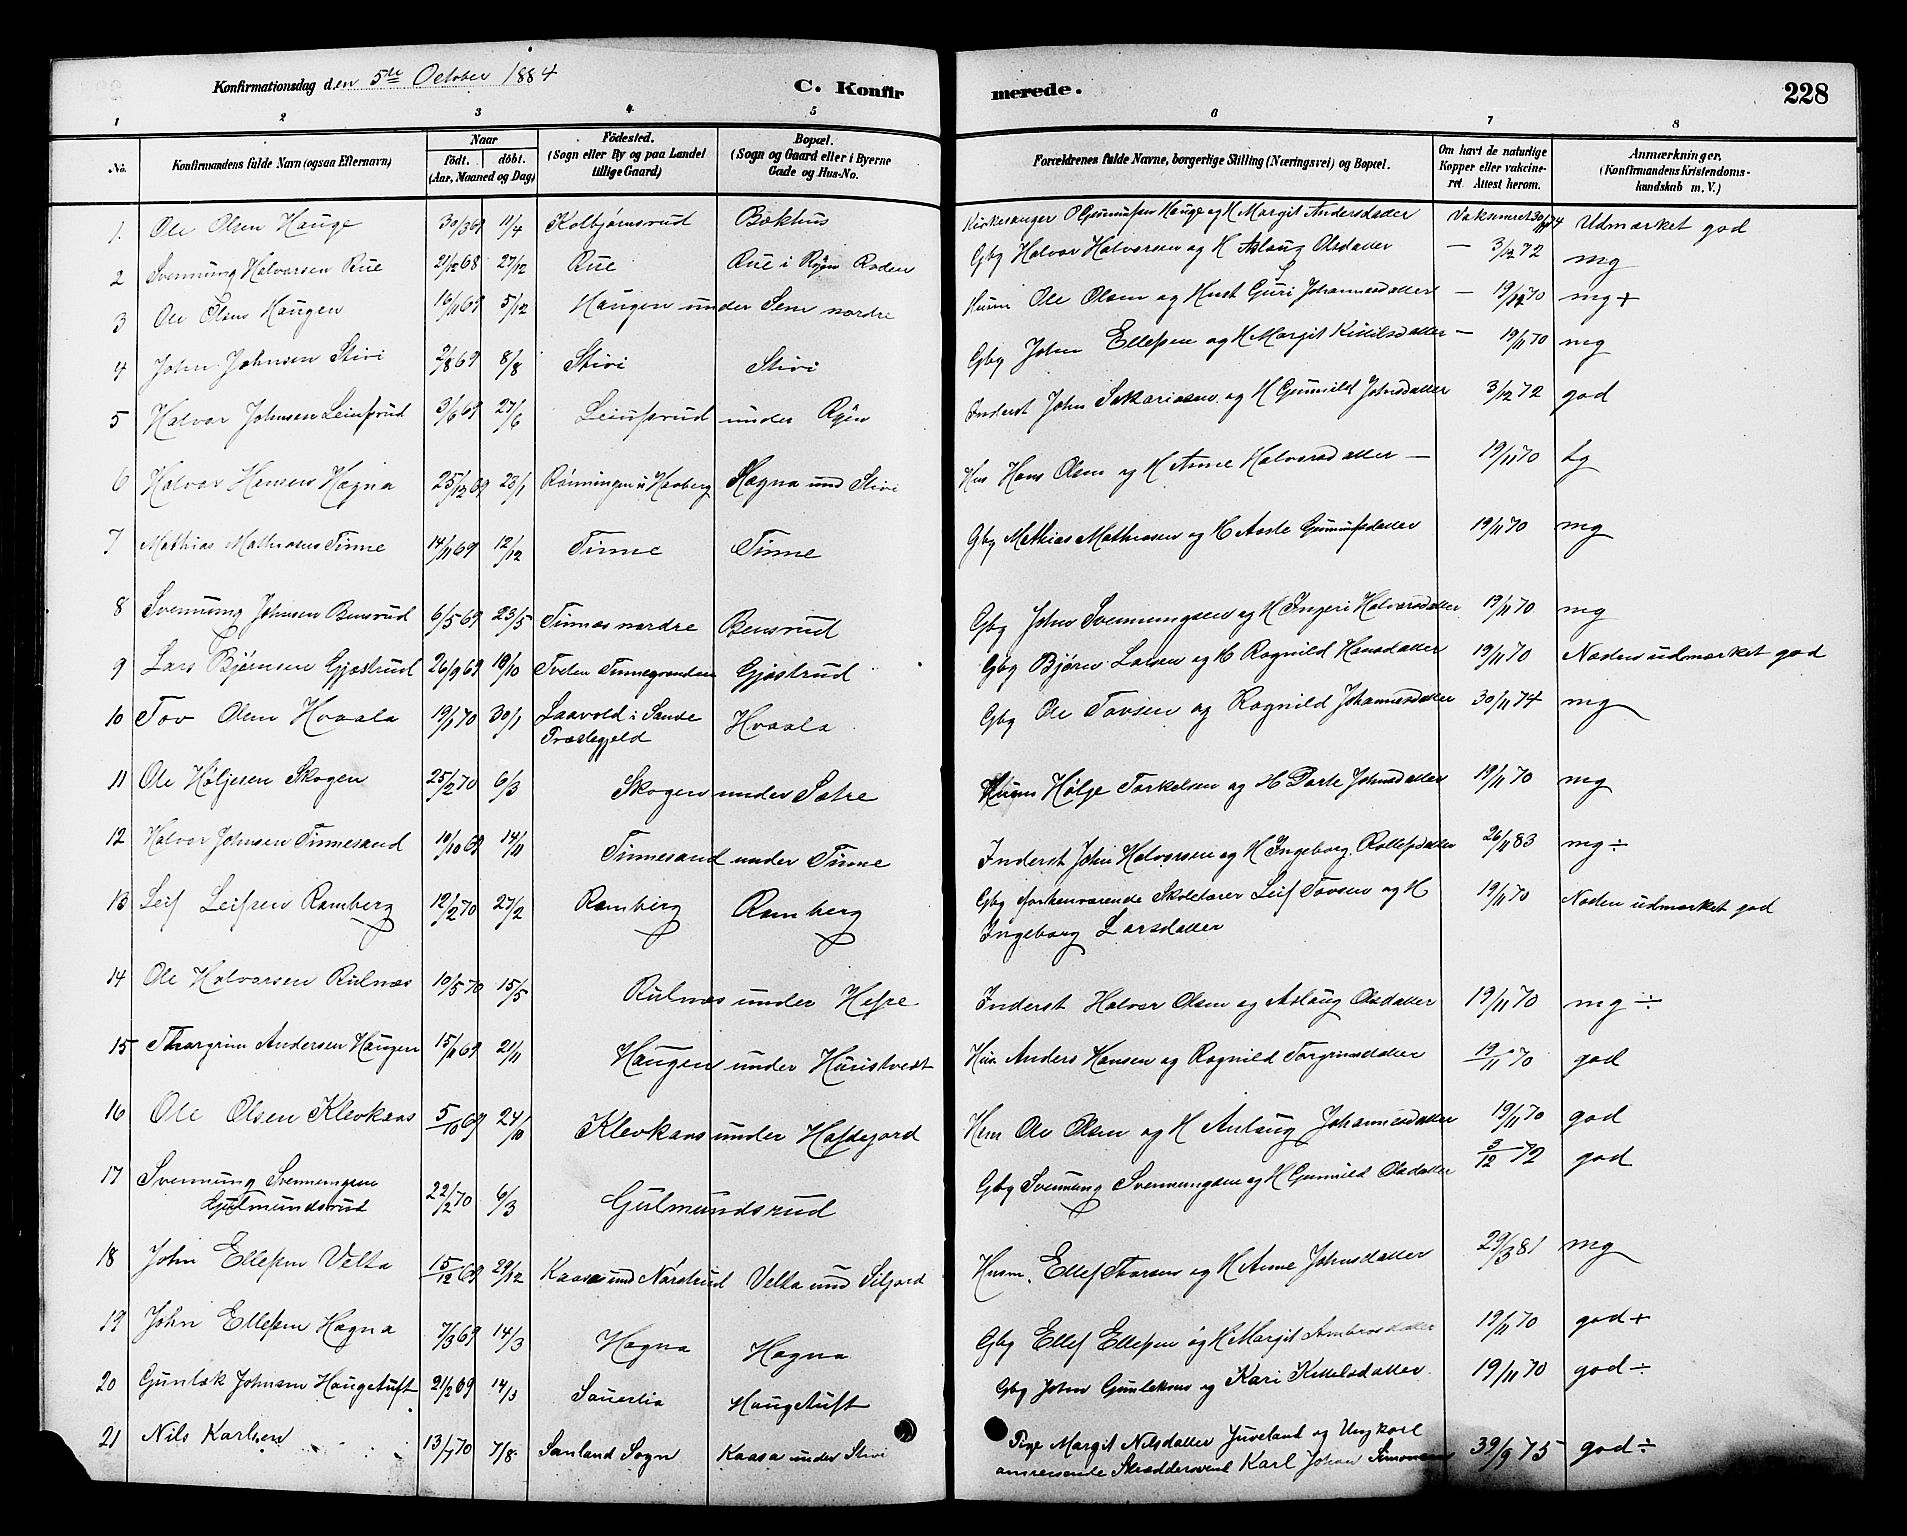 Konfirmationsdag den 5te October 1884 C. Konfir merede. 228
1 2 3 4 5 6 7 8
No. Konfirmandens fulde Navn (ogsaa Efternavn) Naar født. døbt. (Aar, Maaned og Dag) Födested. (Sogn eller By og paa Landet tillige Gaard) Bopæl. (Sogn og Gaard eller i Byerne Gade og Hus-No. Forældrenes fulde Navne, borgerlige Stilling (Næringsvei) og Bopæl. Om havt de naturlige Kopper eller vakcineret. Attest herom. Anmærkninger, (Konfirmandens Kristendomskundskab m. V.)
1. Ole Olsen Hauge 30/3 69 11/4 Kolbjørnsrud Bakhus Kirkesanger O Gunnufsen Hauge og H Margit Andersdatter Vaksineret Udmærket god
2 Svennung Halvorsen Rue 2/12 68 27/12 Rue Rue i Ryen Roden Gbg Halvor Halvorsen og H Aslaug Olsdatter — 3/12 72 mg
3 Ole Olsen Haugen 16/11 69 5/12 Haugen under Sem nordre Husm Ole Olsen og Hust Guri Johannesdatter — 19/12 70 mg +
4 John Johnsen Stivi 2/8 69 8/8 Stivi Stivi Gbg John Ellefsen og H Margit Kittilsdatter — 19/11 70 mg
5 Halvor Johnsen Leinsrud 3/6 69 27/6 Leinsrud under Ryen Inderst John Sakariasen og H Gunnild Johnsdatter 3/12 72 god
6 Halvor Hansen Hagna 25/12 69 23/1 Rønningen u Havberg Hagna und Stivi Hus Hans Olsen og H Anne Halvorsdatter — 19/11 70 tg
7 Mathias Mathiasen Tinne 14/11 69 12/12 Tinne Tinne Gbg Mathias Mathiasen og H Aasle Gunnufsdatter 19/11 70 mg
8 Svennung Johnsen Bensrud 6/5 69 23/5 Tinnes nordre Bensrud Gbg John Svennungsen og H Ingeri Halvorsdatter 19/11 70 mg
9 Lars Bjørnsen Gjøstrud 26/9 69 10/10 Tveten Tinnegrenden Gjøstrud Gbg Bjørn Larsen og H Ragnild Hansdatter 19/11 70 Næden udmærket god
10 Tov Olsen Hvaala 19/1 70 30/1 Laavold i Sande Præstegjeld Hvaala Gbg Ole Tovsen og Ragnild Johannesdatter 30/11 74 mg
11 Ole Høljesen Skogen 25/2 70 6/3 Skogen under Sætre Husm Hølje Torkelsen og H Dorte Johnsdatter 19/11 70 mg
12 Halvor Johnsen Tinnesand 10/10 69 14/11 Tinnesand under Tinne Inderst John Halvorsen og H Ingeborg Rollefsdatter 26/11 83 mg ÷
13 Leif Leifsen Ramberg 12/2 70 27/2 Ramberg Ramberg Gbg forhenværende Skolelærer Leif Tovsen og H
Ingeborg Larsdatter 19/11 70 Næden udmærket god
14 Ole Halvorsen Rulnæs 10/5 70 15/5 Rulnæs under Hefre Inderst Halvor Olsen og Aslaug Olsdatter 19/11 70 mg ÷
15 Thorgrim Andersen Haugen 15/11 69 21/11 Haugen under Huristvedt Hus Anders Hansen og Ragnild Torgrimsdatter 19/11 70 god
16 Ole Olsen Klevkaas 5/10 69 24/10 Klevkaas under Haftejord Husm Ole Olsen og H Anlaug Johannesdatter 19/11 70 god
17 Svennung Svennungsen
Gulmundsrud 22/2 70 6/3 Gulmundsrud Gbg Svennung Svennungsen og H Gunnild Olsdatter 3/12 72 god
18 John Ellefsen Velta 15/12 69 29/12 Kaasa und Nørstrud Velta und Siljord Husm. Ellef Thorsen og H Anne Johnsdatter 29/3 81 mg
19 John Ellefsen Hagna 7/3 69 14/3 Hagna Hagna Gbg Ellef Ellefsen og H Margit Ambrosdatter 19/11 70 god +
20 Gunlek Johnsen Haugetuft 21/2 69 14/3 Sauerlia Haugetuft Gbg John Gunleksen og Kari Kittelsdatter 19/11 70 god ÷
21 Nils Karlsen 13/7 70 7/8 Sanland Sogn Kaasa under Stivi Pige Margit Nilsdatter Juveland og Ungkarl
omreisende Skræddersvend Karl Johan Simonsen 39/9 75 god ÷